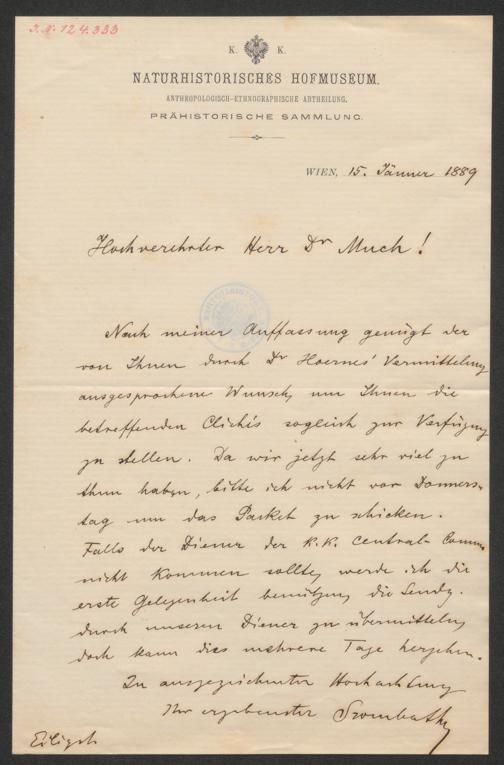 J.N. 124.333
K. K.
NATURHISTORISCHES HOFMUSEUM.
ANTHROPOLOGISCH-ETHNOGRAPHISCHE ABTHEILUNG.
PRÄHISTORISCHE SAMMLUNG.
WIEN, 15. Jänner 1889
Hochverehrter Herr Dr Much!
Nach meiner Auffassung genügt der
von Ihnen durch Dr Hoernes' Vermittelung
ausgesprochene Wunsch, um Ihnen die
betreffenden Clichés sogleich zur Verfügung
zu stellen. Da wir jetzt sehr viel zu
thun haben, bitte ich nicht vor Donners-
tag um das Packet zu schicken.
Falls der Diener der k.k. Central-Comm.
nicht kommen sollte, werde ich die
erste Gelegenheit benützen, die Sendg.
durch unseren Diener zu übermitteln,
doch kann dies mehrere Tage hergehen.
In ausgezeichneter Hochachtung
Ihr ergebenster Szombathy